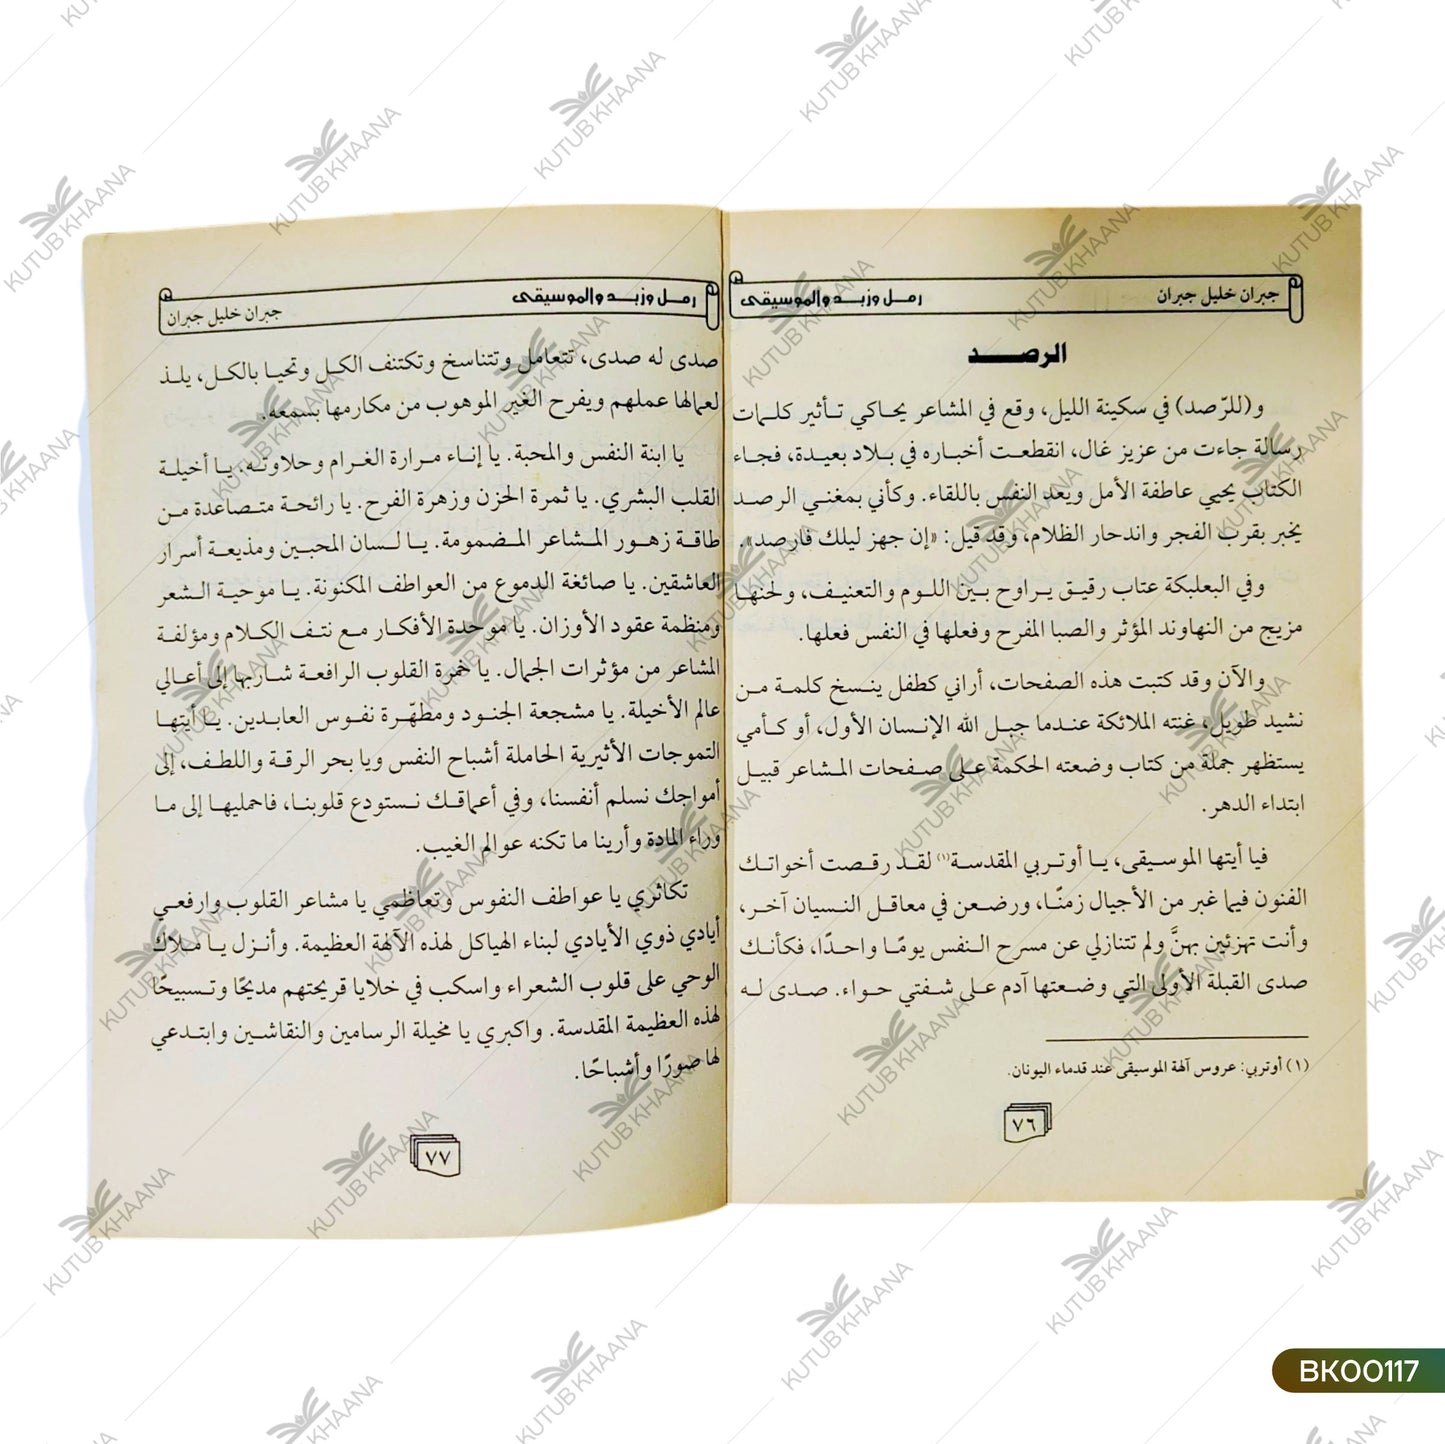 جبران خليل جبران
رمل وزبد والموسيقى
الرصد
و(للرّصد) في سكينة الليل، وقع في المشاعر يحاكي تأثير كلمات
رسالة جاءت من عزيز غال، انقطعت أخباره في بلاد بعيدة، فجاء
الكتاب يحيي عاطفة الأمل ويعد النفس باللقاء. وكأني بمغني الرصد
يخبر بقرب الفجر واندحار الظلام، وقد قيل: «إن جهز ليلك فارصد».
وفي البعلبكة عتاب رقيق يراوح بين اللوم والتعنيف، ولحنها
مزيج من النهاوند المؤثر والصبا المفرح وفعلها في النفس فعلها.
والآن وقد كتبت هذه الصفحات، أراني كطفل ينسخ كلمة من
نشيد طويل، غنته الملائكة عندما جبل الله الإنسان الأول، أو كأمي
يستظهر جملة من كتاب وضعته الحكمة على صفحات المشاعر قبيل
ابتداء الدهر.
فيا أيتها الموسيقى، يا أوتربي المقدسة(١) لقد رقصت أخواتك
الفنون فيما غبر من الأجيال زمنًا، ورضعن في معاقل النسيان آخر،
وأنت تهزئين بهنَّ ولم تتنازلي عن مسرح النفس يومًا واحدًا، فكأنك
صدى القبلة الأولى التي وضعتها آدم على شفتي حواء. صدى له
(١) أوتربي: عروس آلهة الموسيقى عند قدماء اليونان.
٧٦
رمل وزبد والموسيقى
جبران خليل جبران
صدى له صدى، تتعامل وتتناسخ وتكتنف الكل وتحيا بالكل، يلذ
لعمالها عملهم ويفرح الغير الموهوب من مكارمها بسمعه.
يا ابنة النفس والمحبة. يا إناء مرارة الغرام وحلاوته. يا أخيلة
القلب البشري. يا ثمرة الحزن وزهرة الفرح. يا رائحة متصاعدة من
طاقة زهور المشاعر المضمومة. يا لسان المحبين ومذيعة أسرار
العاشقين. يا صائغة الدموع من العواطف المكنونة. يا موحية الشعر
ومنظمة عقود الأوزان. يا موحدة الأفكار مع نتف الكلام ومؤلفة
المشاعر من مؤثرات الجمال. يا خمرة القلوب الرافعة شاربها إلى أعالي
عالم الأخيلة. يا مشجعة الجنود ومطهّرة نفوس العابدين. يا أيتها
التموجات الأثيرية الحاملة أشباح النفس ويا بحر الرقة واللطف، إلى
أمواجك نسلم أنفسنا، وفي أعماقك نستودع قلوبنا، فاحمليها إلى ما
وراء المادة وأرينا ما تكنه عوالم الغيب.
تكاثري يا عواطف النفوس وتعاظمي يا مشاعر القلوب وارفعي
أيادي ذوي الأيادي لبناء الهياكل لهذه الآلهة العظيمة. وأنزل يا ملاك
الوحي على قلوب الشعراء واسكب في خلايا قريحتهم مديحًا وتسبيحًا
لهذه العظيمة المقدسة. واكبري يا مخيلة الرسامين والنقاشين وابتدعي
لها صورًا وأشباحًا.
٧٧
KUTUB KHAANA
BK00117